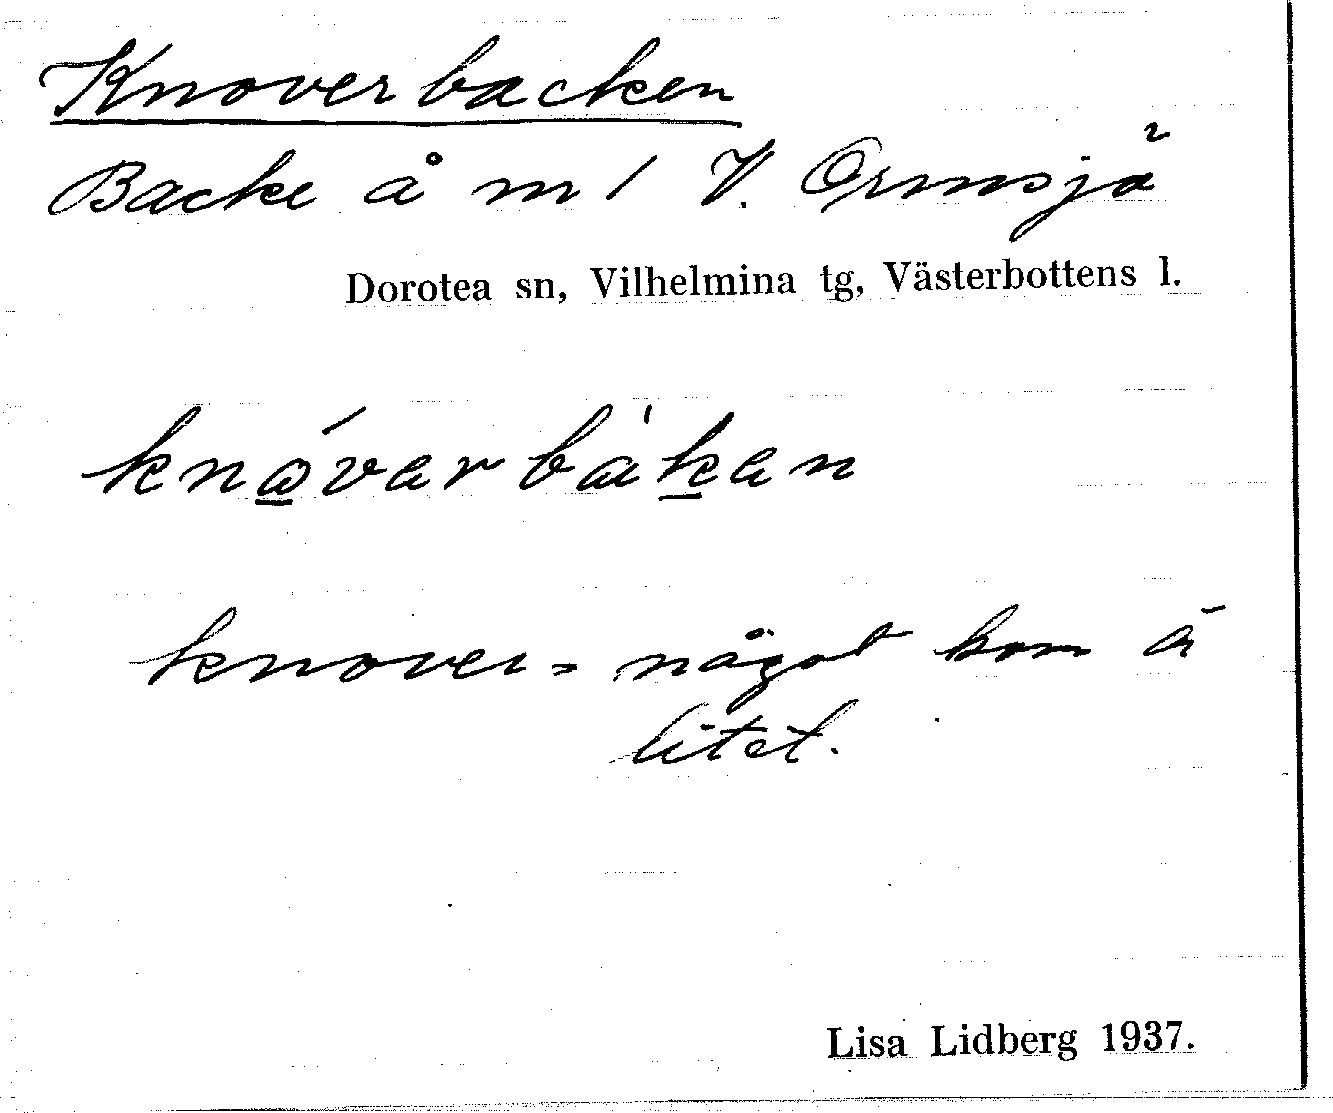 Knoverbacken
Backe å m 1 V. Ormsjö
Dorotea sn, Vilhelmina tg, Västerbottens l.
knåvarbakan
knover = något som är
litet.
Lisa Lidberg 1937.